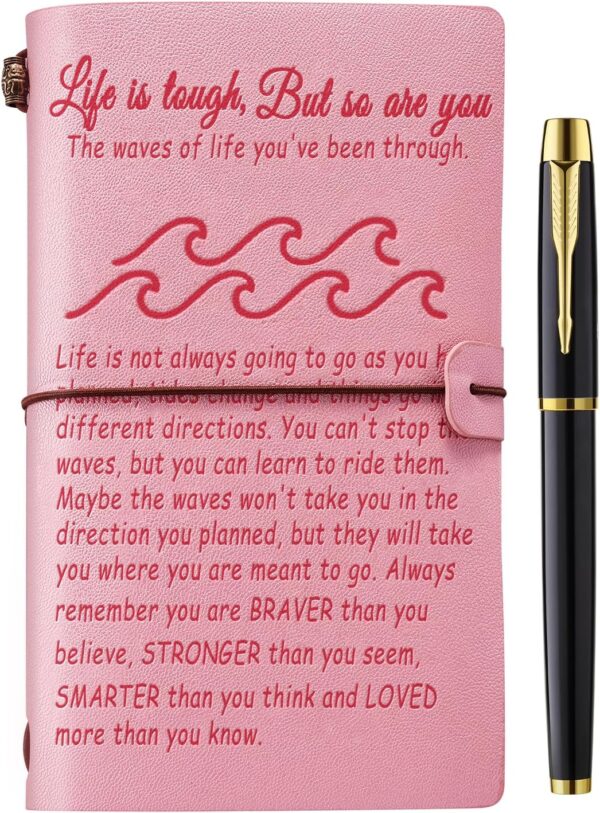 Life is tough, But so are you
The waves of life you've been through.
Life is not always going to go as you
planned, tides change and things go
different directions. You can't stop
waves, but you can learn to ride them.
Maybe the waves won't take you in the
direction you planned, but they will take
you where you are meant to go. Always
remember you are BRAVER than you
believe, STRONGER than you seem,
SMARTER than you think and LOVED
more than you know.